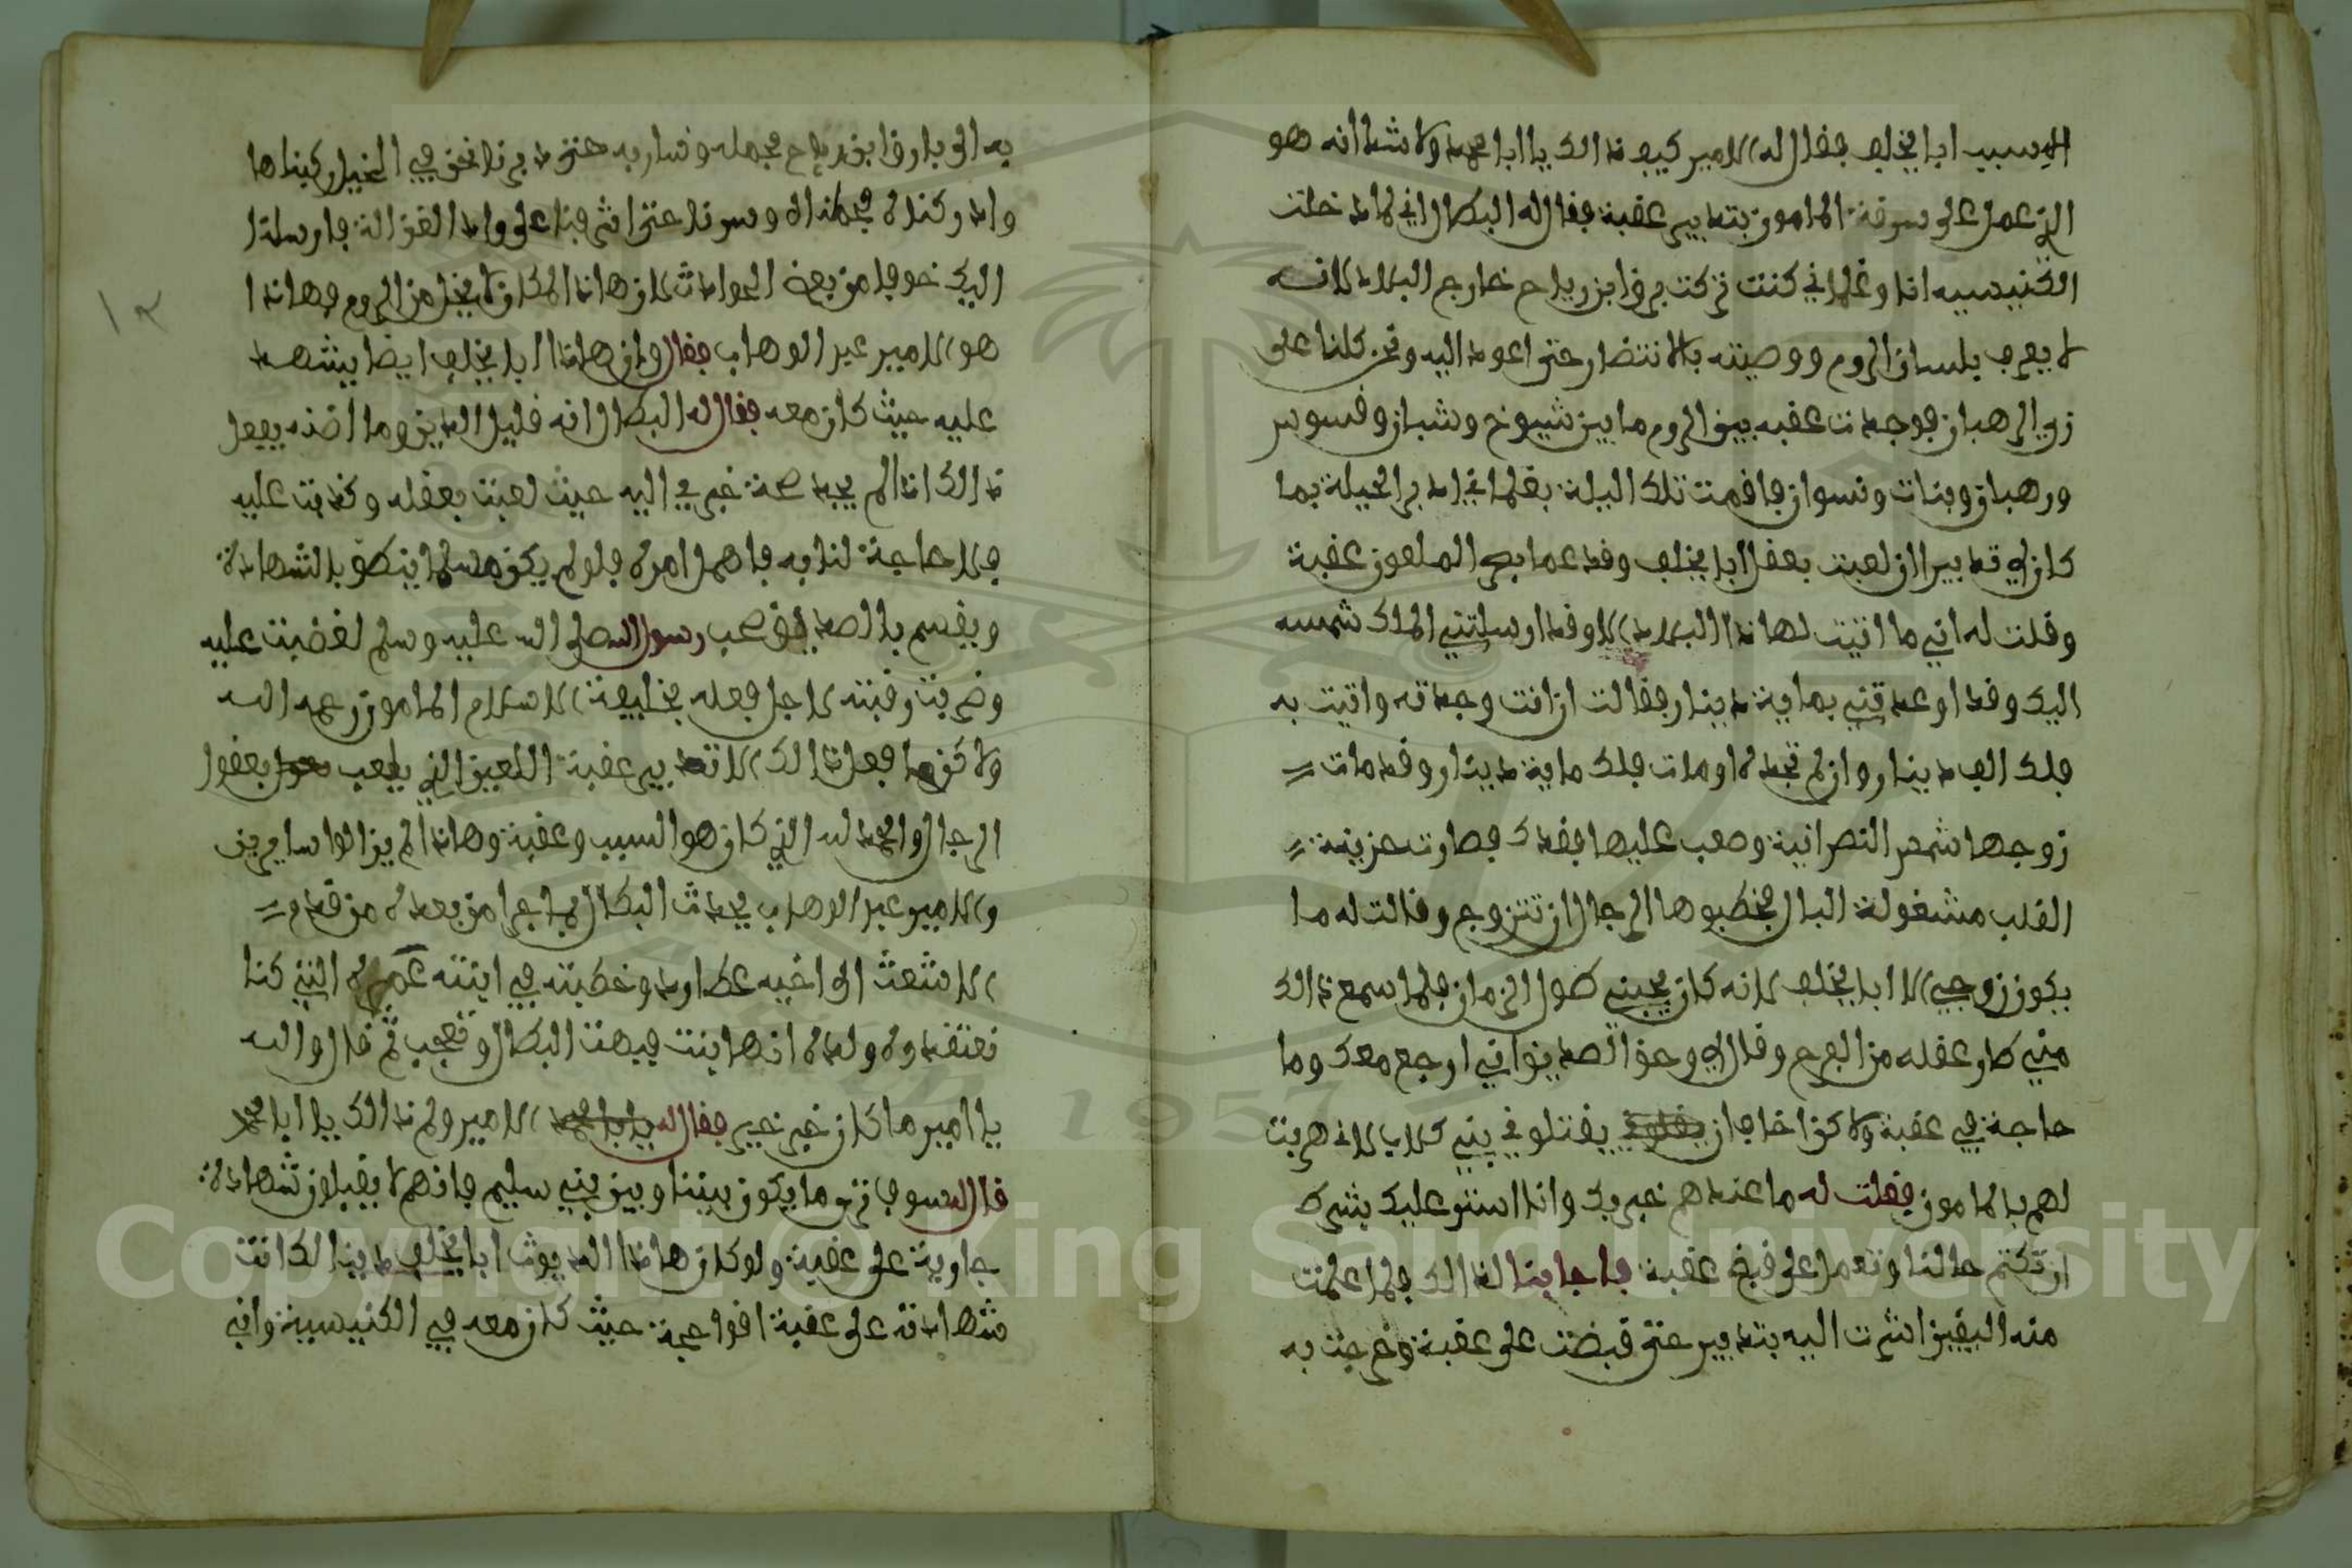 الا سبب ابا يخلف فقال له الامير كيف ذالك يا ابا محمد ولا شدا انه هو
الذي عمل على سرقة المامون بتدبير عقبة فقال له البطال اني لما دخلت
الكنيسيه انا وغلماني كنت تركت برفا بن رباح خارج البلاد لانه
لا يعرف بلسان الروم ووصيته بالانتضار حتى اعود اليه ونحن كلنا على
زي الرهبان فوجدت عقبه بين الروم ما بين شيوخ وشبان وقسوس
ورهبان وبنات ونسوان فاقمت تلك اليلة بغلماني ادبر الحيلة بما
كان لي تدبير الا ان لعبت بعقل ابا يخلف وقد عما بصر الملعون عقبة
وقلت له اني ما اتيت لهاذا البلاد الا وقد ارسلتني الملك شمسه
اليك وقد اوعدتني بماية دينار فقالت ان انت وجدته واتيت به
فلك الف دينار وان لم تجده او مات فلك ماية دينار وقد مات
زوجها شمعر النصرانية وصعب عليها بفقدك فصارت حزينة
القلب مشغولة البال فخطبوها الرجال ان تتزوج وقالت له ما
يكون زوجي الا ابا يخلف لانه كان يحبني طول الزمان فلما سمع ذالك
مني طار عقله من الفرح وقال لي وحق الصديق اني ارجع معك وما
حاجة في عقبة ولاكن اخاف ان يقتلوني بني كلاب لاني هربت
لهم بالمامون فقلت له ما عندهم خبر بك وانا استر عليك بشرط
ان تكتم حالنا وتعمل على قبض عقبة فاجابنا لذالك فلما علمت
منه اليقين اشرت اليه بتدبير حتى قبضت على عقبة وخرجت به
به الى بارقا بن رباح فحمله وسار به حتى دبرنا نحن في الخيل ركبناها
وادركنده فحملناه وسرنا حتى اشرفنا على واد الغزالة فارسلنا
اليك خوفا من بعض الحوادث لان هاذا المكان لا يخل من الروم وهاذا
هو الامير عبد الوهاب فقال وان هاذا ابا يخلف ايضا يشهد
عليه حيث كان معه فقال له البطال انه قليل الدين وما اضنه يفعل
ذالك اذا لم يجد صحة خبري اليه حيث لعبت بعقله وكذبت عليه
فلا حاجة لنا به فاهمل امره فلو لم يكن مسلما ينطق بالشهادة
ويقسم بالصديق صحب رسول الله صلى الله عليه وسلم لغضبت عليه
وضربت رقبته لاجل فعله بخليفة الاسلام المامون رحمه الله
ولاكن ما فعل ذالك الا تدبير عقبة اللعين الذي يلعب بعقول
الرجال والحمد لله الذي كان هو السبب وعقبة وهاذا لم يزالوا سايرين
والامير عبد الوهاب يحدث البطال بما جرا من بعده من قدوم
الاشعث الى اخيه عطارد وخطبته في ابنته عمره التي كنا
نعتقدوه ولده انها بنت فبهت البطال وتعجب ثم قال والله
يا امير ما كان خبر خير فقال له الامير ولم ذالك يا ابا محمد
قال لسوف ترى ما يكون بيننا وبين بني سليم فانهم لا يقبلون شهادة
جاوية على عقبة ولو كان هاذا الديوث ابا يخلف دينا لكانت
شهادته على عقبة اقوا حجة حيث كان معه في الكنيسية واني
١٢
Copyright © King Saud University
1957